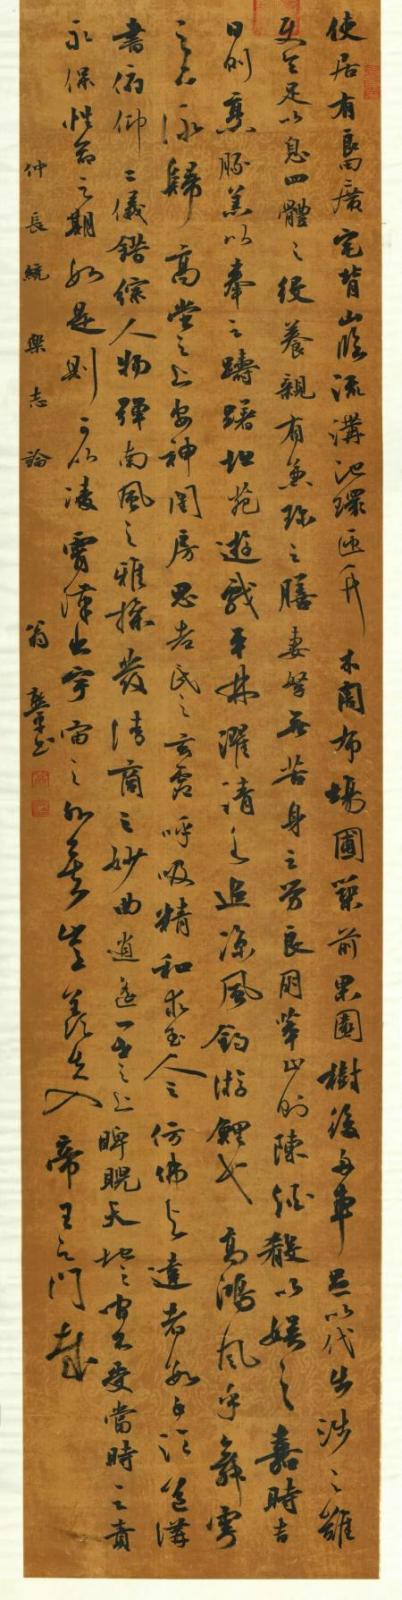 使居有良田廣宅背山臨流溝池環匝竹木周布場圃築前果園樹後舟車足以代步涉之難
使令足以息四體之役養親有兼珍之膳妻孥無苦身之勞良朋萃止則陳酒殽以娛之嘉時吉
日則烹豚羔以奉之躊躇畦苑遊戲平林濯清水追涼風釣游鯉弋高鴻風乎舞雩
之下詠歸高堂之上安神閨房思老氏之玄虛呼吸精和求至人之仿佛與達者數子論道講
書俯仰二儀錯綜人物彈南風之雅操發清商之妙曲逍遙一世之上睥睨天地之間不受當時之責
永保性命之期如是則可以凌霄漢出宇宙之外矣豈羨夫入帝王之門哉
仲長統樂志論